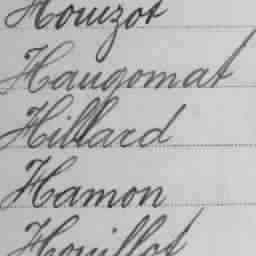 Houizot
Haugomat
Hillard
Hamon
Houillot